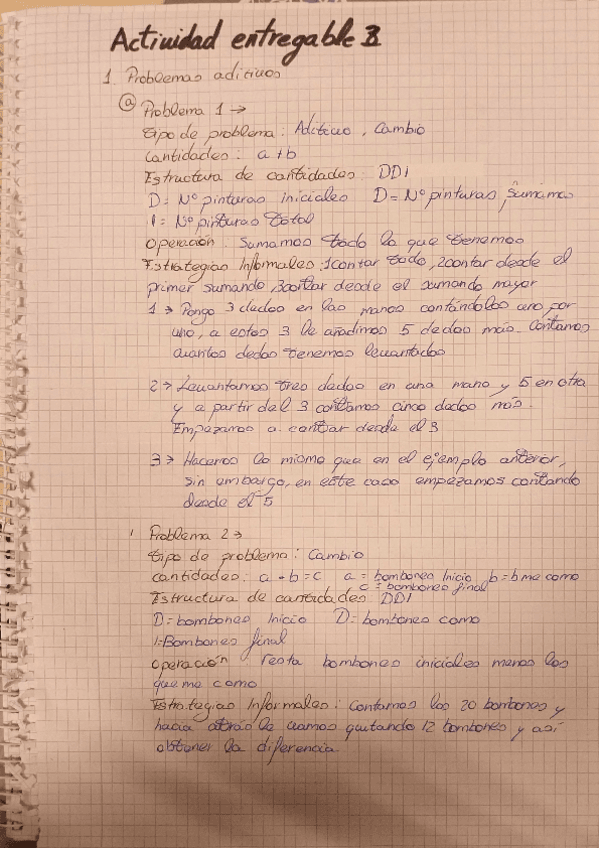 Actividad entregable 3
1. Problemas aditivos
a Problema 1 →
Tipo de problema: Aditivo, Cambio
Cantidades: a + b
Estructura de cantidades: DDI
D = Nº pinturas iniciales D = Nº pinturas sumamos
I = Nº pinturas total
Operación: Sumamos todo lo que tenemos
Estrategias Informales: 1contar todo, 2contar desde el
primer sumando, 3contar desde el sumando mayor
1 → Pongo 3 dedos en las manos contándolos uno por
uno, a estos 3 le añadimos 5 dedos más. Contamos
cuantos dedos tenemos levantados
2 → Levantamos tres dedos en una mano y 5 en otra
y a partir del 3 contamos cinco dedos más.
Empezamos a contar desde el 3
3 → Hacemos lo mismo que en el ejemplo anterior,
sin embargo, en este caso empezamos contando
desde el 5
Problema 2 →
Tipo de problema: Cambio
cantidades: a - b = c a = bombones Inicio b = b me como
c = bombones final
Estructura de cantidades DDI
D = bombones Inicio D = bombones como
I = Bombones final
Operación: resta bombones iniciales menos los
que me como
Estrategias Informales: Contamos los 20 bombones y
hacia atrás le vamos quitando 12 bombones y así
obtener la diferencia.